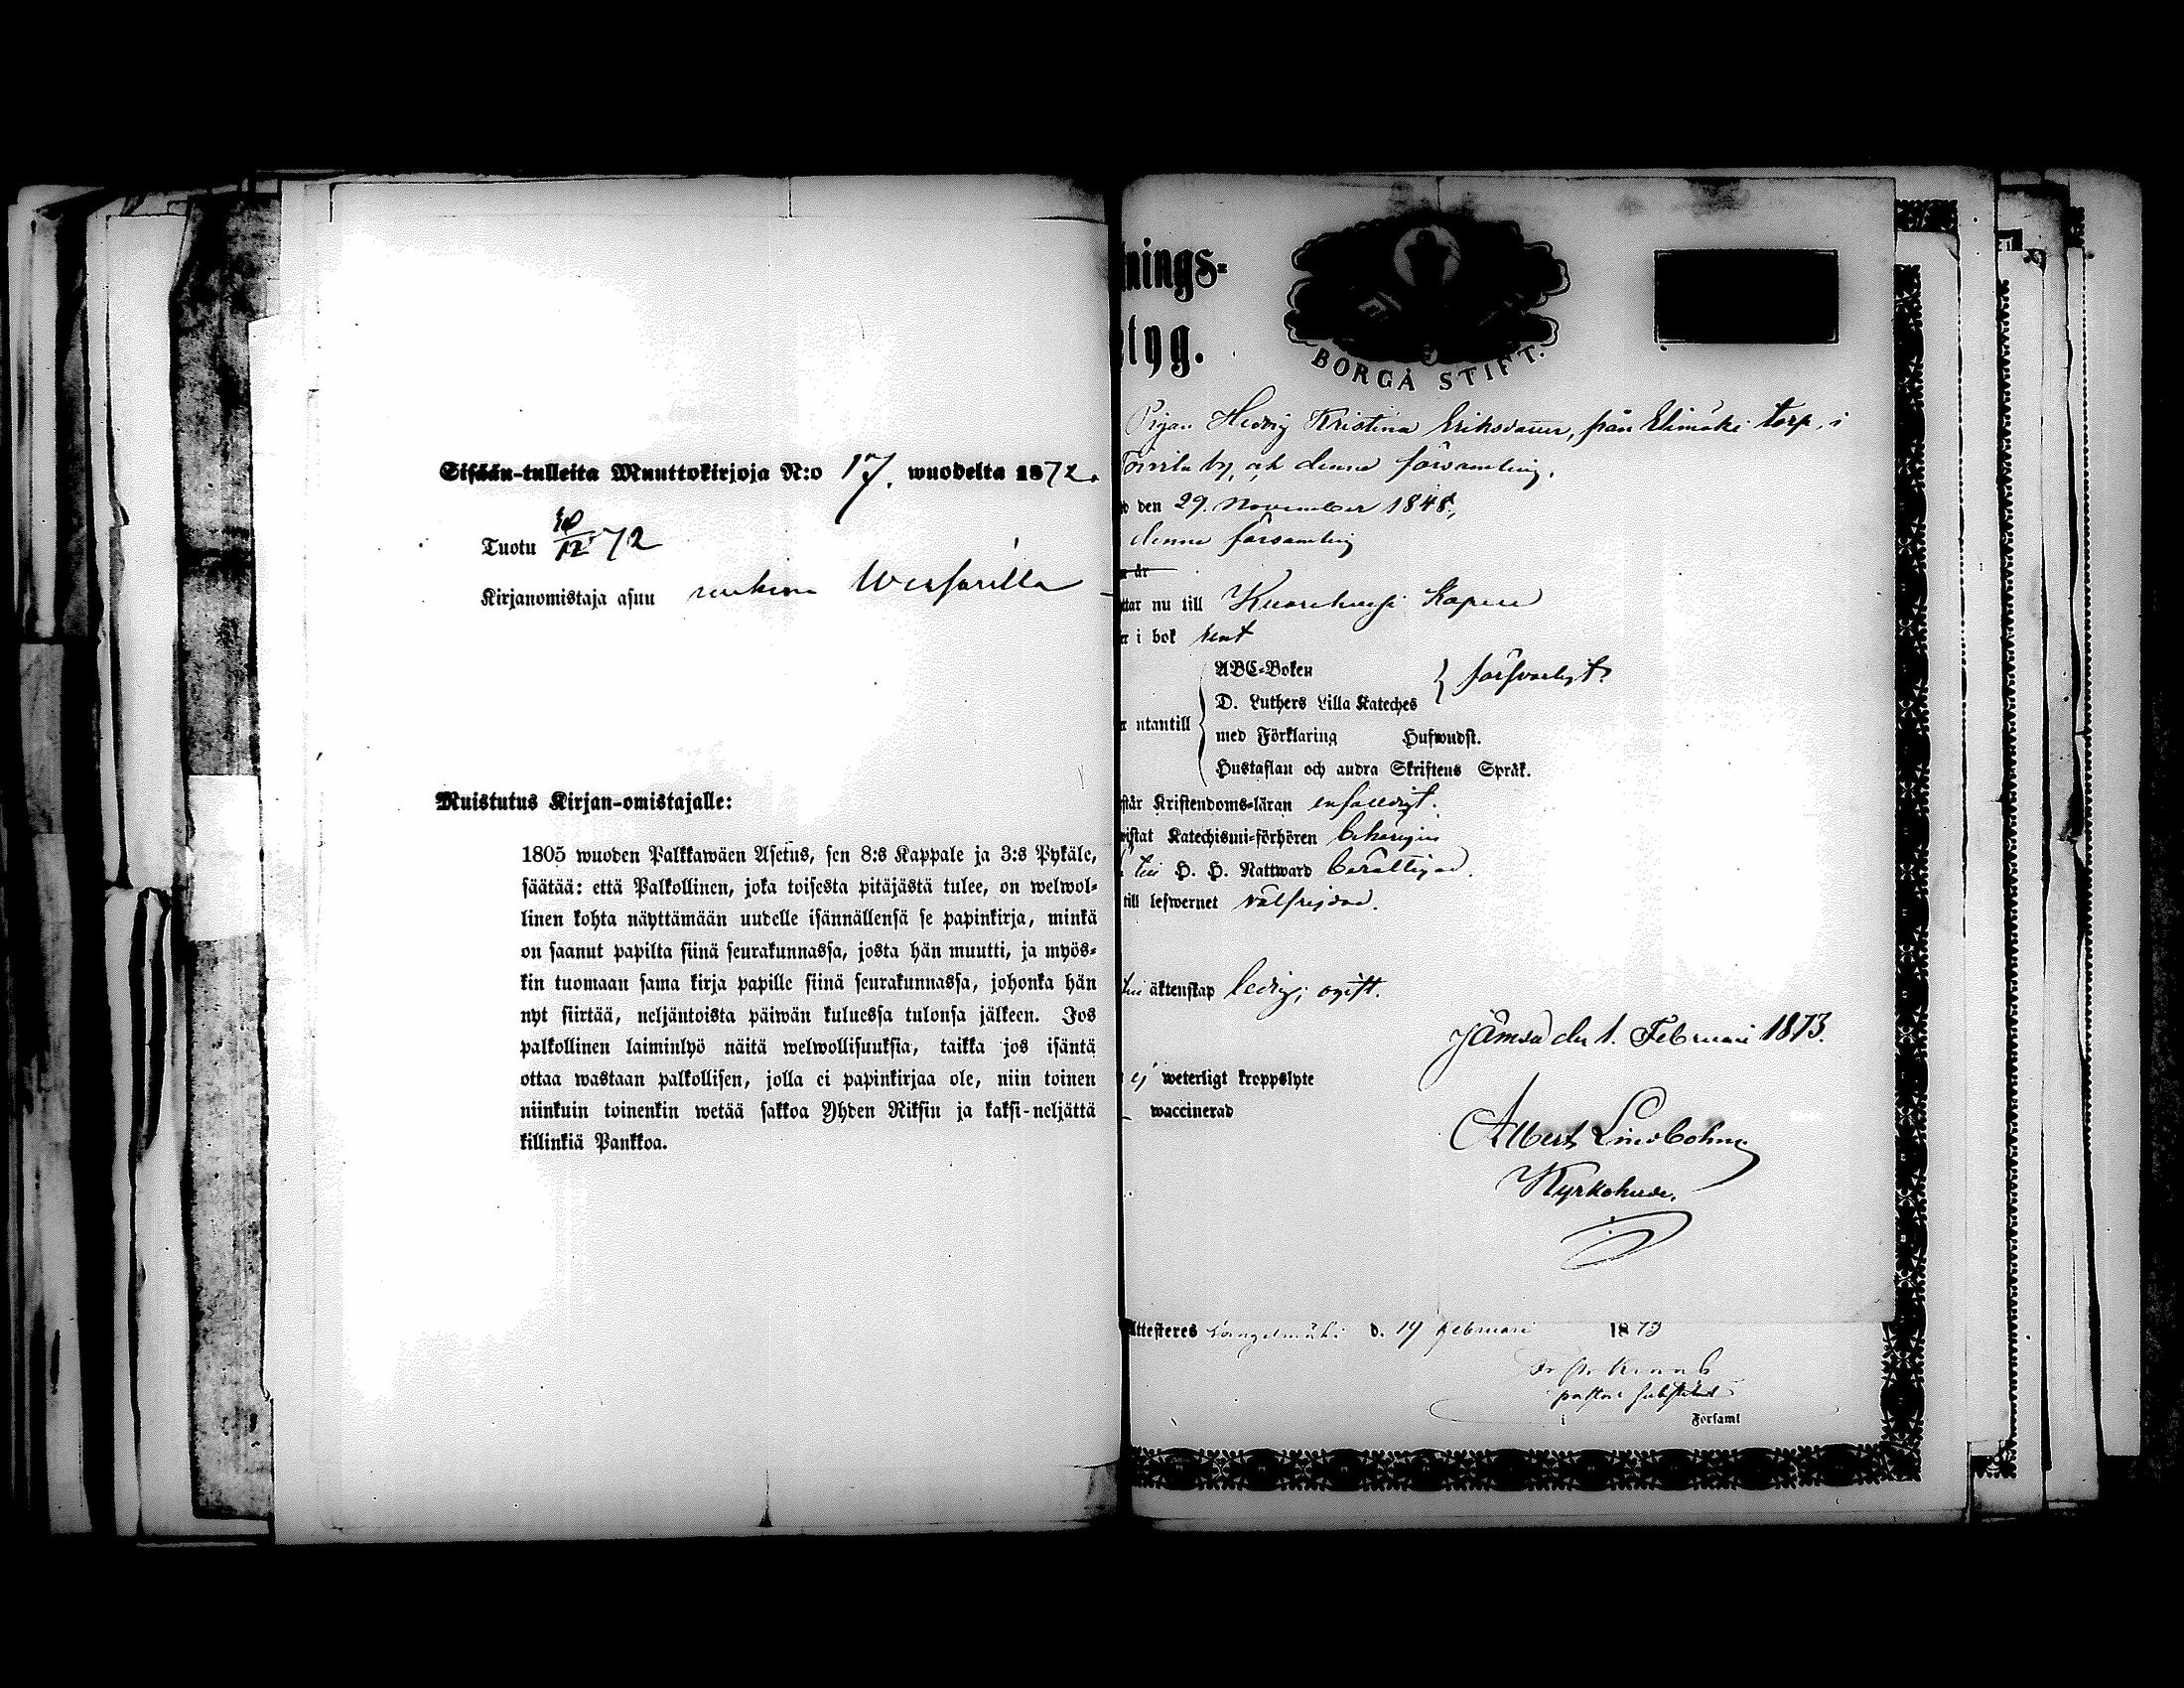 Sisään-tulleita Muuttokirjoja N:o 17. wuodelta 1872.
Tuotu 10/12 72
Kirjanomistaja asuu
Muistutus Kirjan-omistajalle:
1805 wuoden Palkkawäen Asetus, sen 8:s Kappale ja 3:s Pykäle,
säätää: että Palkollinen, joka toisesta pitäjästä tulee, on welwol-
linen kohta näyttämään uudelle isännällensä se papinkirja, minkä
on saanut papilta siinä seurakunnassa, josta hän muutti, ja myös-
kin tuomaan sama kirja papille siinä seurakunnassa, johonka hän
nyt siirtää, neljäntoista päiwän kuluessa tulonsa jälkeen. Jos
palkollinen laiminlyö näitä welwollisuuksia, taikka jos isäntä
ottaa wastaan palkollisen, jolla ei papinkirjaa ole, niin toinen
niinkuin toinenkin wetää sakkoa Yhden Riksin ja kaksi-neljättä
killinkiä Pankkoa.
nings-
tyg.
BORGÅ STIFT.
Pigan Hedvig Kristina Eriksdotter, från Elimäki torp, i
by, och denna församling.
den 29. November 1848,
denna församling
är
ttar nu till Kuorehvesi Kapell
r i bok rent
ABC-Boken } försvarligt.
D. Luthers Lilla Kateches
utantill
med Förklaring Hufwudst.
Hustaflan och andra Skriftens Språk.
står Kristendoms-läran enfaldigt.
wistat Katechismi-förhören behörigen
till H. H. Nattward berättigad.
till lefwernet välfrejdad.
till äktenskap ledig; ogift.
Jämsä den 1. Februari 1873.
ej weterligt kroppslyte
waccinerad
Albert Lindbohm
Kyrkoherde.
Attesteres Längelmäki d. 19 februari 1873
pastor substitut
i Församl